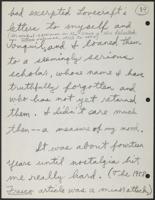 had excerpted Lovecraft's
letters to myself and
Jonquil, and I loaned them
to a seemingly serious
scholar, whose name I have
truthfully forgotten, and
who has not yet returned
them. I didn't care much
then—a measure of my mood.
It was about fourteen
years until nostalgia hit
me really hard. (The 1958
Fresco article was a minor attack)